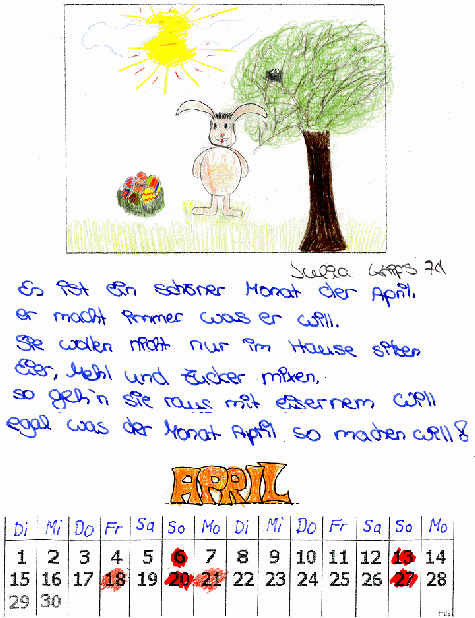 Julia 7d
Es ist ein schöner Monat der April.
er macht immer was er will.
Sie wollen nicht nur im Hause sitzen
Eier, Mehl und Zucker mixen.
so geh'n sie raus mit eisernem Will
egal was der Monat April so machen will!
APRIL
Di Mi Do Fr Sa So Mo Di Mi Do Fr Sa So Mo
1 2 3 4 5 6 7 8 9 10 11 12 13 14
15 16 17 18 19 20 21 22 23 24 25 26 27 28
29 30